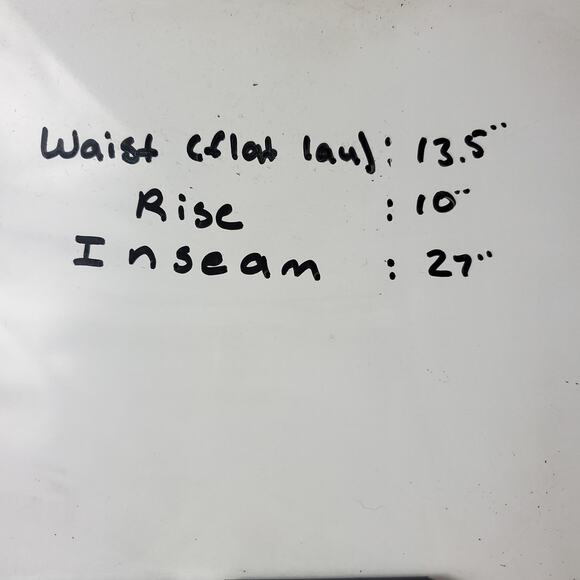 Waist (flat lay): 13.5"
Rise : 10"
Inseam : 27"